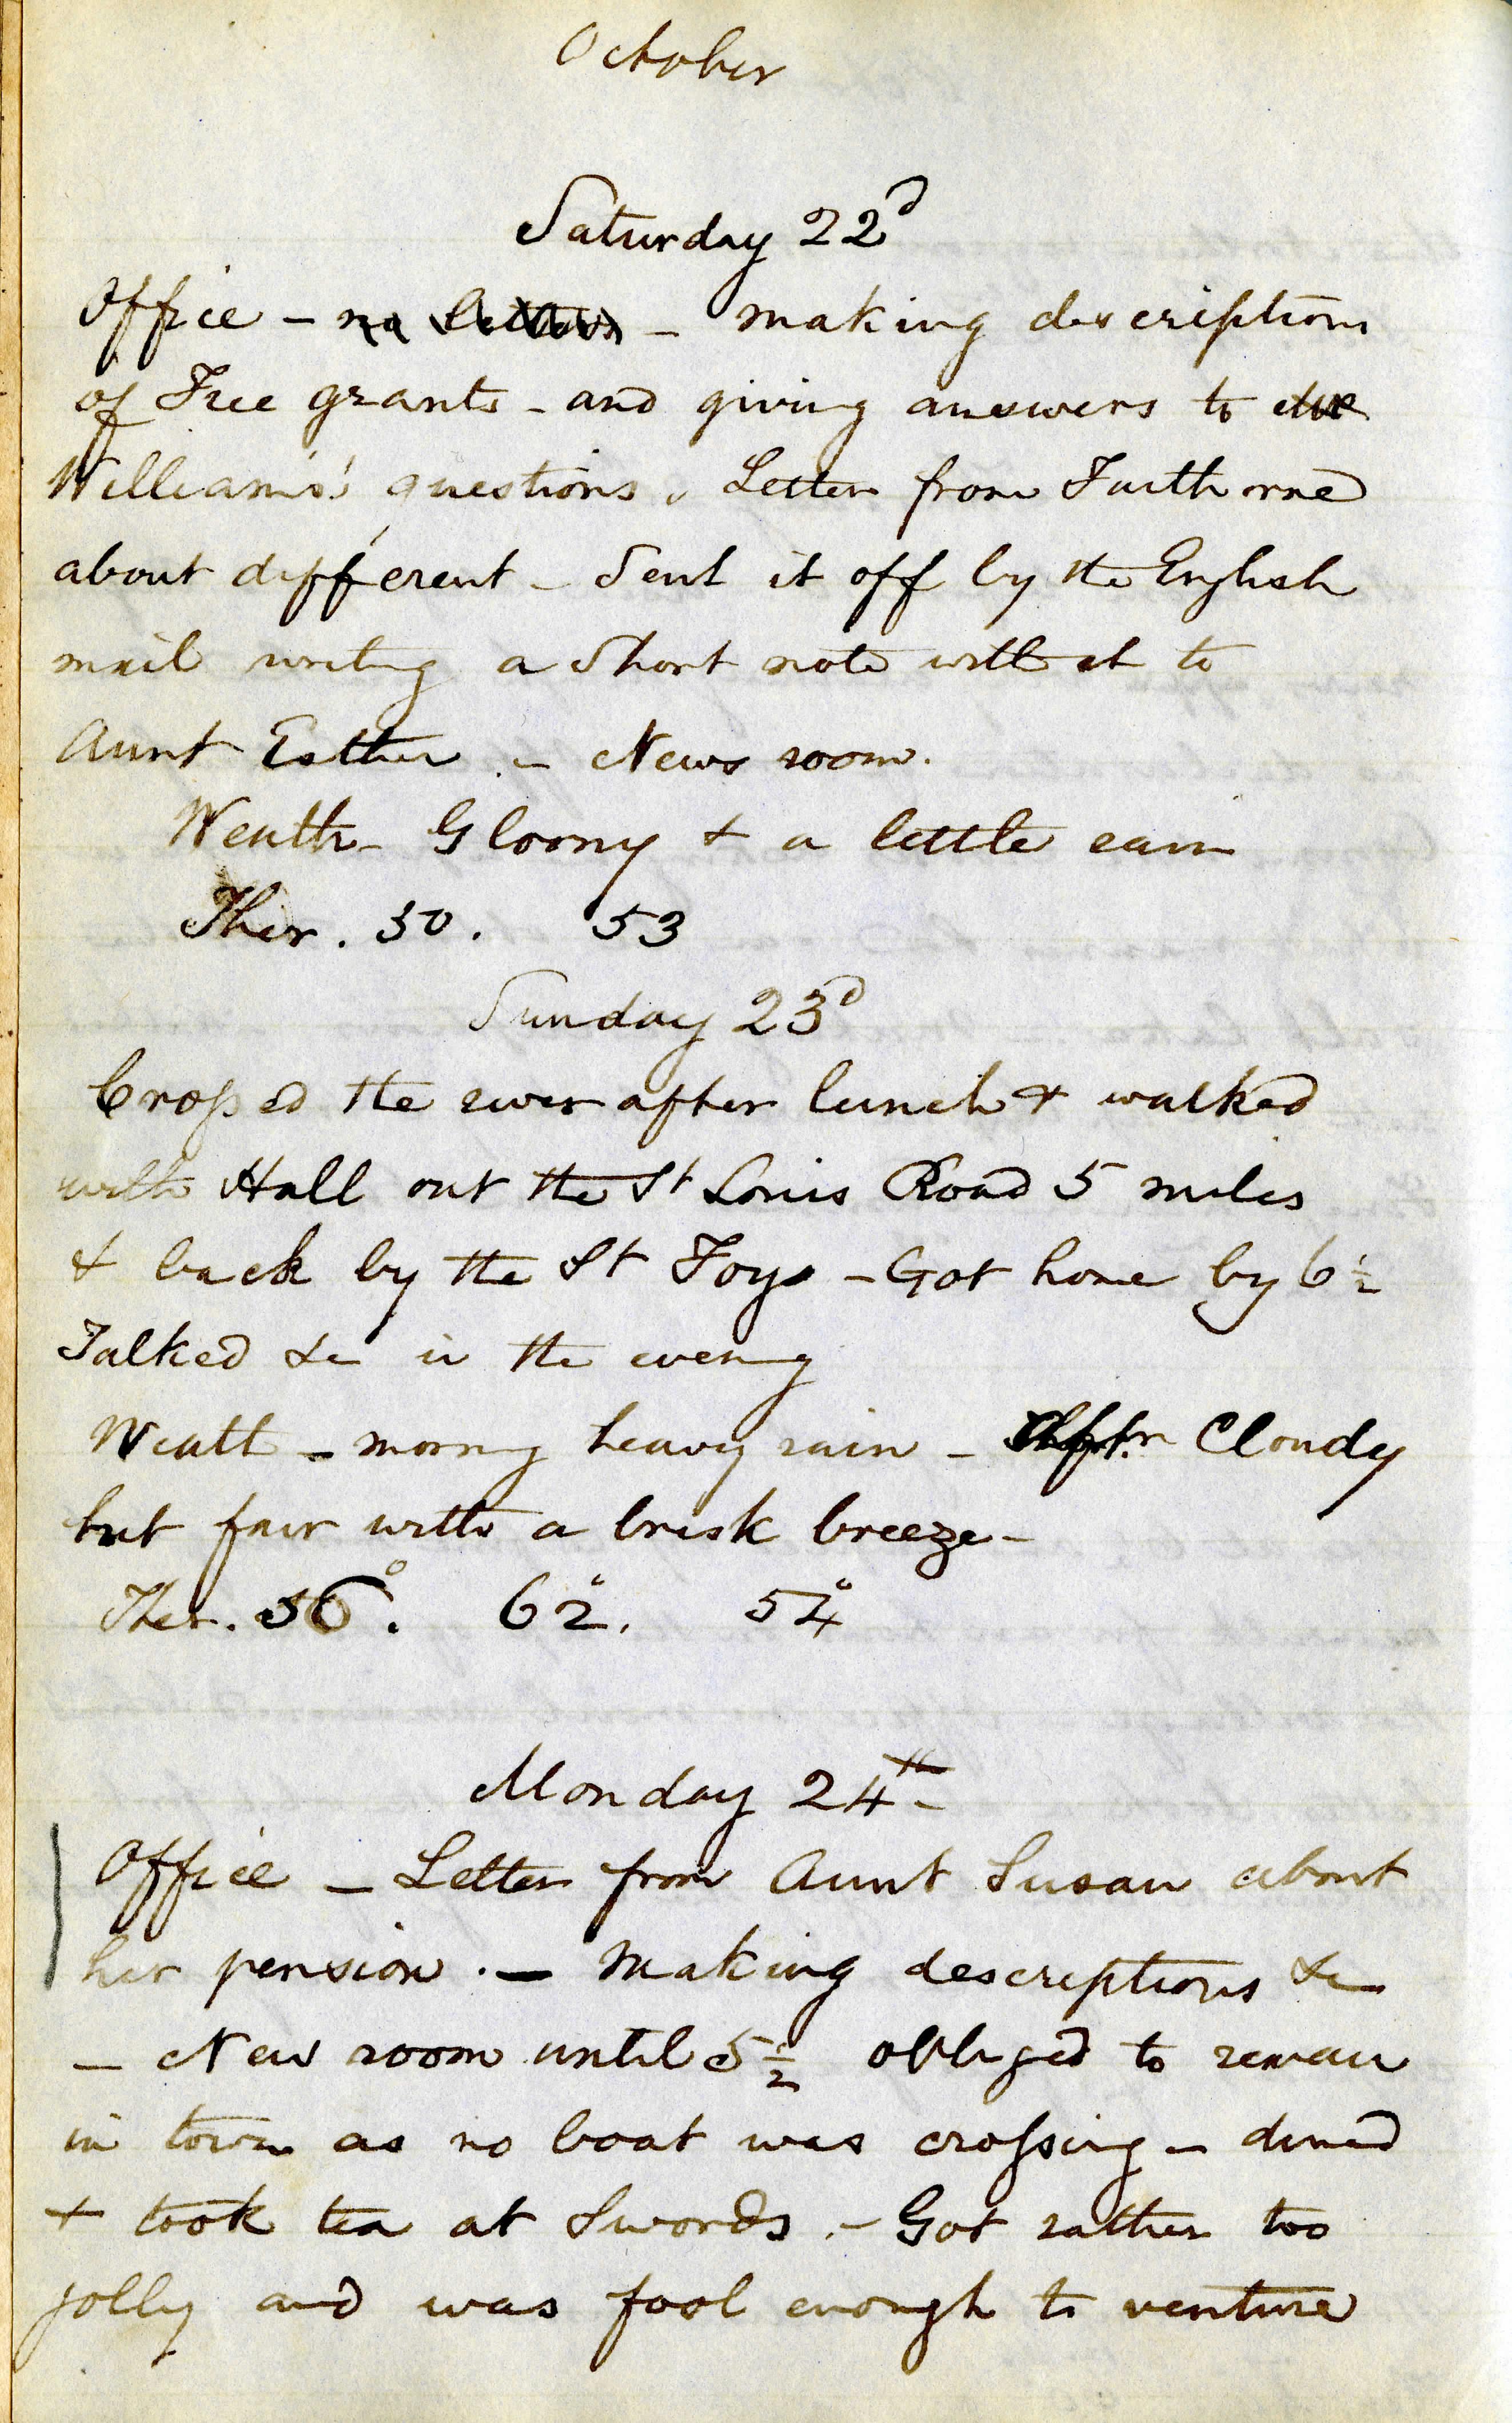 October
Saturday 22d
Office - no letters - Making descriptions
of Free grants - and giving answers to
William's questions. Letter from Faithorne
about different - Sent it off by the English
mail writing a short note with it to
Aunt Esther - News room.
Weath- Gloomy & a little rain
Ther. 50. 53
Sunday 23d
Crossed the river after lunch & walked
with Hall out the St Louis Road 5 miles
& back by the St Foys - Got home by 6 1/2
Talked &c in the evening
Weath - morning heavy rain - Aftrn Cloudy
but fair with a brisk breeze -
Ther. 56°. 62°. 54°
Monday 24th
Office - Letter from Aunt Susan about
her pension. - Making descriptions &c
- New room until 5 1/2 obliged to remain
in town as no boat was crossing - dined
& took tea at Swords. - Got rather too
jolly and was fool enough to venture